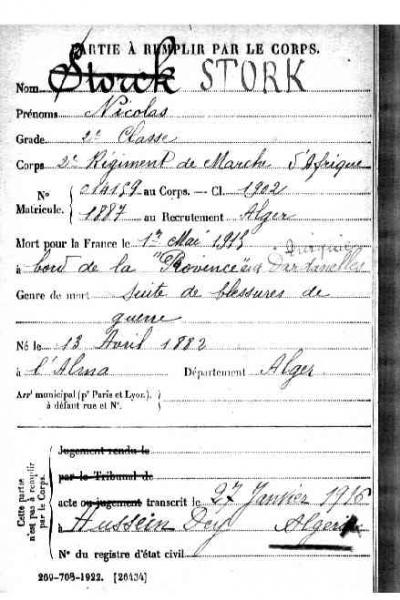 PARTIE À REMPLIR PAR LE CORPS.
Nom Storck STORK
Prénoms Nicolas
Grade 2e Classe
Corps 2e Régiment de Marche d'Afrique
N° Matricule. { 014159 au Corps. — Cl. 1902
1887 au Recrutement Alger
Mort pour la France le 1er Mai 1915
à bord de la "Provence" aux Dardanelles
Genre de mort suite de blessures de
guerre
Né le 13 Avril 1882
à l'Alma Département Alger
Arrt municipal (pr Paris et Lyon),
à défaut rue et N°.
Cette partie n'est pas à remplir par le Corps.
Jugement rendu le
par le Tribunal de
acte ou jugement transcrit le 27 Janvier 1916
à Hussein Dey Algérie
N° du registre d'état civil
269-708-1922. [26434]